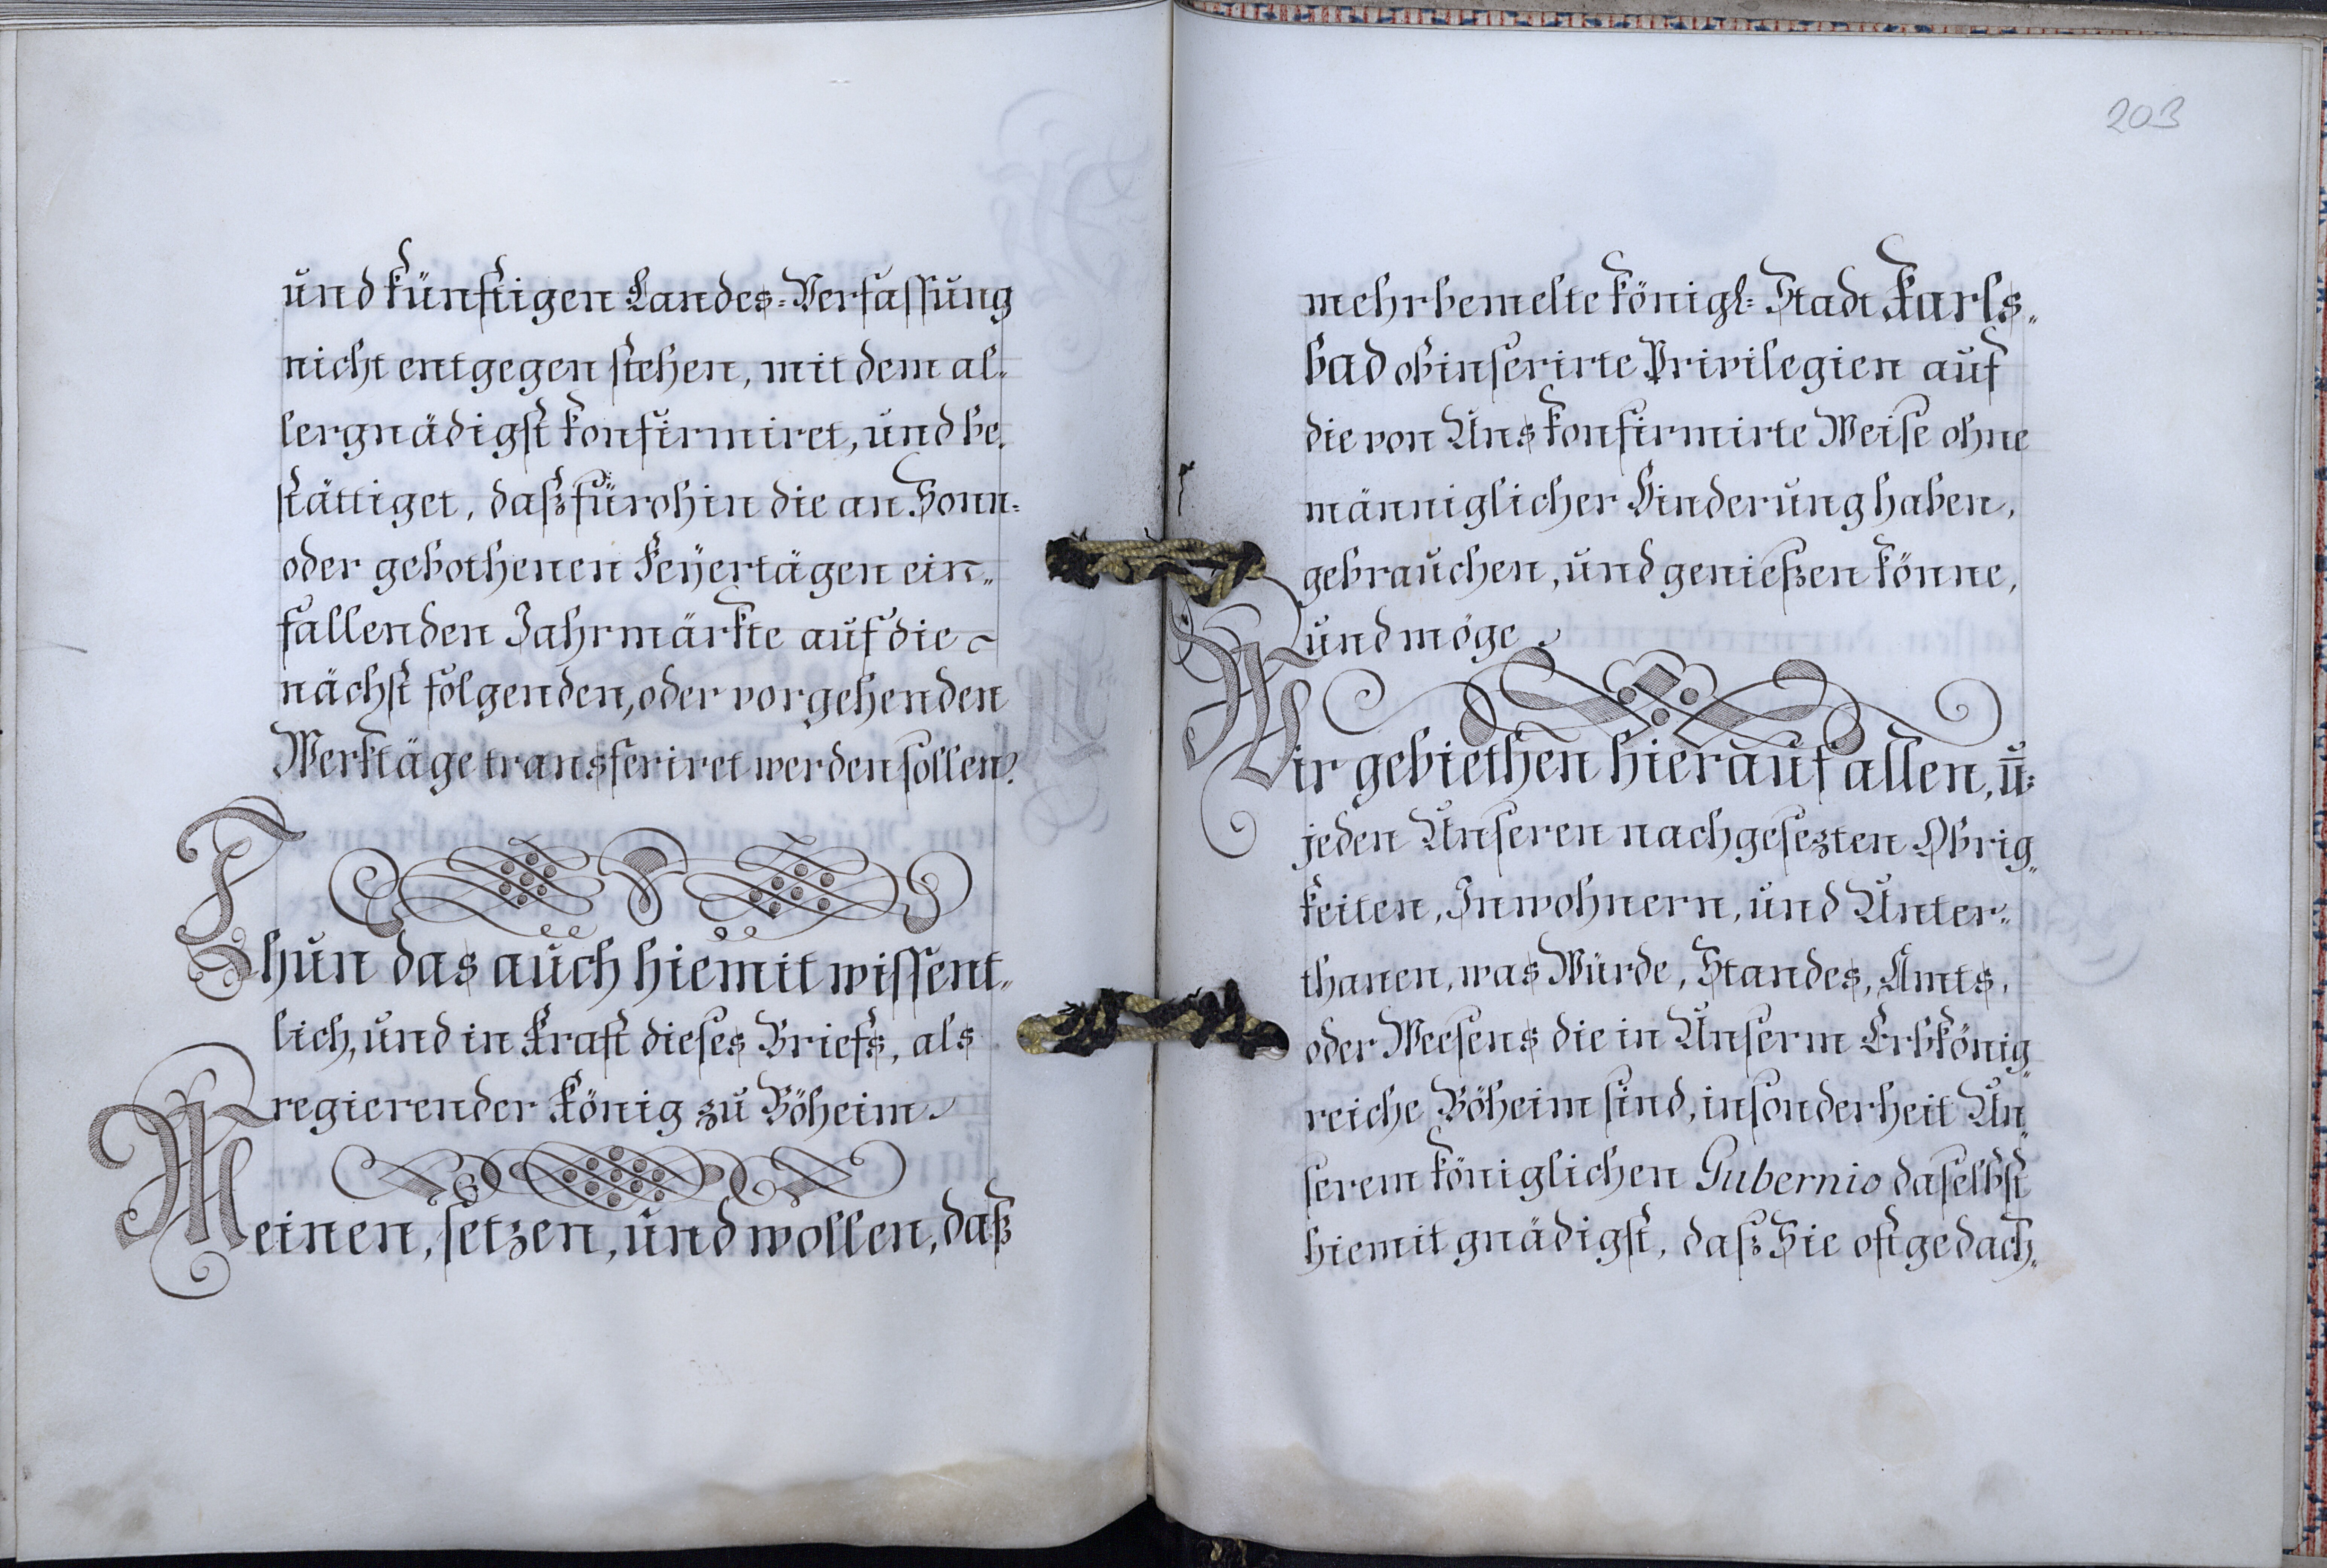 und künftigen Landes=Verfassung
nicht entgegen stehen, mit dem al-
lergnädigst konfirmiret, und be-
stättiget, daß fürohin die an Sonn=
oder gebothenen Feÿertägen ein-
fallenden Jahrmärkte auf die
nächst folgenden, oder vorgehenden
Werktäge transferiret werden sollen.
Thun das auch hiemit wissent-
lich, und in Kraft dieses Briefs, als
regierender König zu Böheim.
Meinen, setzen, und wollen, daß
203
mehrbemelte königl: Stadt Karls-
bad obinserirte Privilegien auf
die von Uns konfirmirte Weise ohne
männiglicher Hinderung haben,
gebrauchen, und genießen könne,
und möge.
Wir gebiethen hierauf allen, u:
jeden Unseren nachgesezten Obrig-
keiten, Inwohnern, und Unter-
thanen, was Würde, Standes, Amts,
oder Weesens die in Unserm Erbkönig-
reiche Böheim sind, insonderheit Un-
serem königlichen Gubernio daselbst
hiemit gnädigst, daß Sie oftgedach-